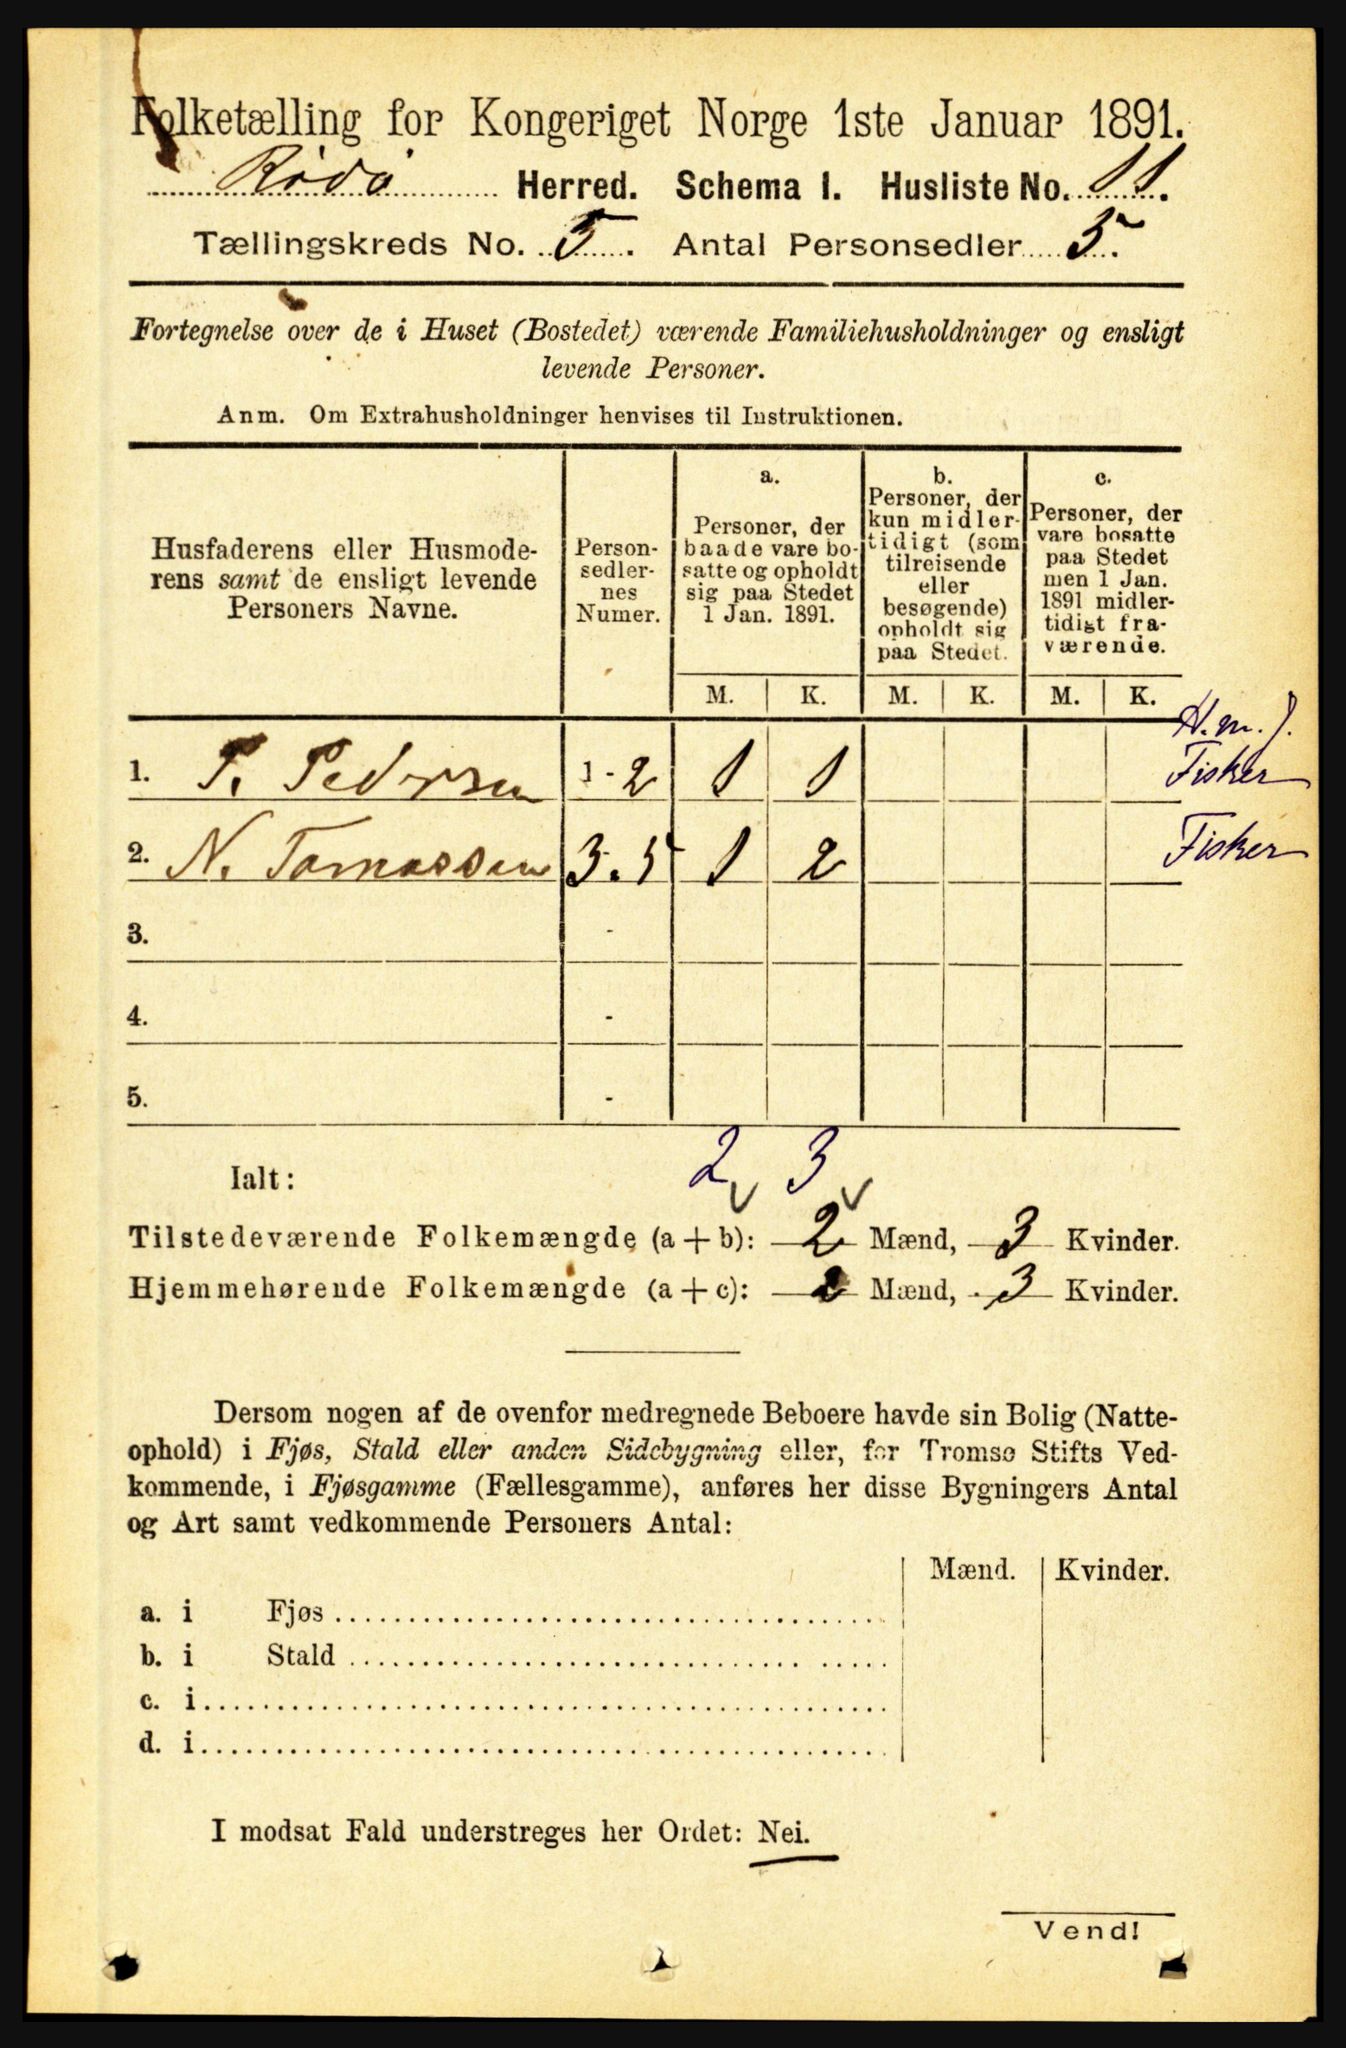 Folketælling for Kongeriget Norge 1ste Januar 1891.
Rödö Herred. Schema I. Husliste No. 11.
Tællingskreds No. 5. Antal Personsedler 5.
Fortegnelse over de i Huset (Bostedet) værende Familiehusholdninger og ensligt
levende Personer.
Anm. Om Extrahusholdninger henvises til Instruktionen.
Husfaderens eller Husmode-
rens samt de ensligt levende
Personers Navne.
Person-
sedler-
nes
Numer.
a.
Personer, der
baade vare bo-
satte og opholdt
sig paa Stedet
1 Jan. 1891.
b.
Personer, der
kun midler-
tidigt (som
tilreisende
eller
besøgende)
opholdt sig
paa Stedet.
c.
Personer, der
vare bosatte
paa Stedet
men 1 Jan.
1891 midler-
tidigt fra-
værende.
M. K. M. K. M. K.
H. m. J.
1. P. Pedersen 1-2 1 1 Fisker
2. N. Tomassen 3-5 1 2 Fisker
3. -
4. -
5. -
2 3
Ialt:
Tilstedeværende Folkemængde (a+b): 2 Mænd, 3 Kvinder.
Hjemmehørende Folkemængde (a+c): 2 Mænd, 3 Kvinder.
Dersom nogen af de ovenfor medregnede Beboere havde sin Bolig (Natte-
ophold) i Fjøs, Stald eller anden Sidebygning eller, for Tromsø Stifts Ved-
kommende, i Fjøsgamme (Fællesgamme), anføres her disse Bygningers Antal
og Art samt vedkommende Personers Antal:
Mænd. Kvinder.
a. i Fjøs
b. i Stald
c. i
d. i
I modsat Fald understreges her Ordet: Nei.
Vend!